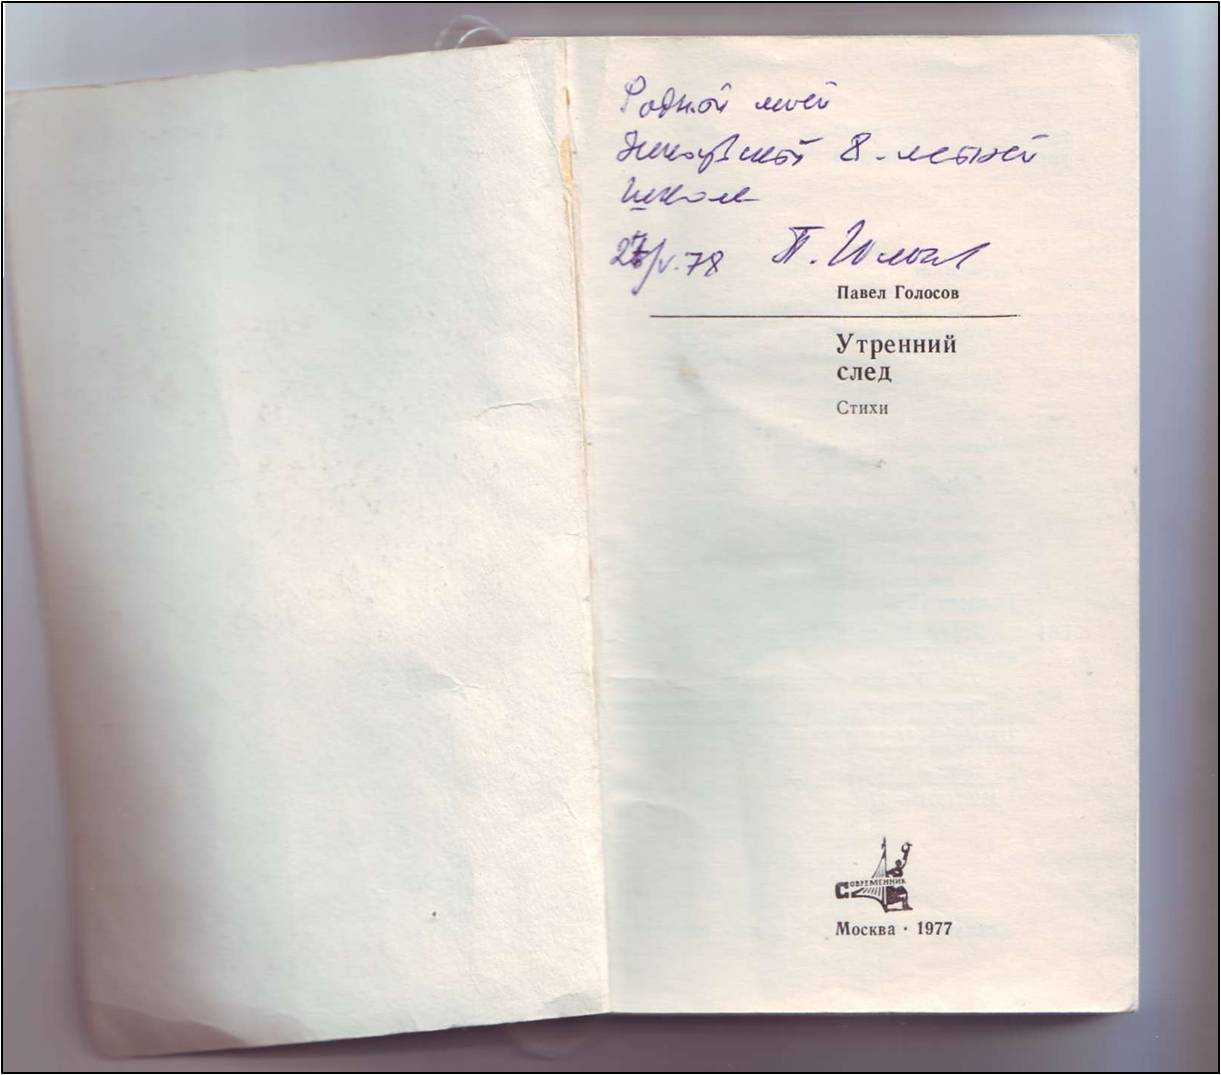 Родной моей
8-летней
школе
78 П. Голосов
Павел Голосов
Утренний
след
Стихи
Современник
Москва · 1977